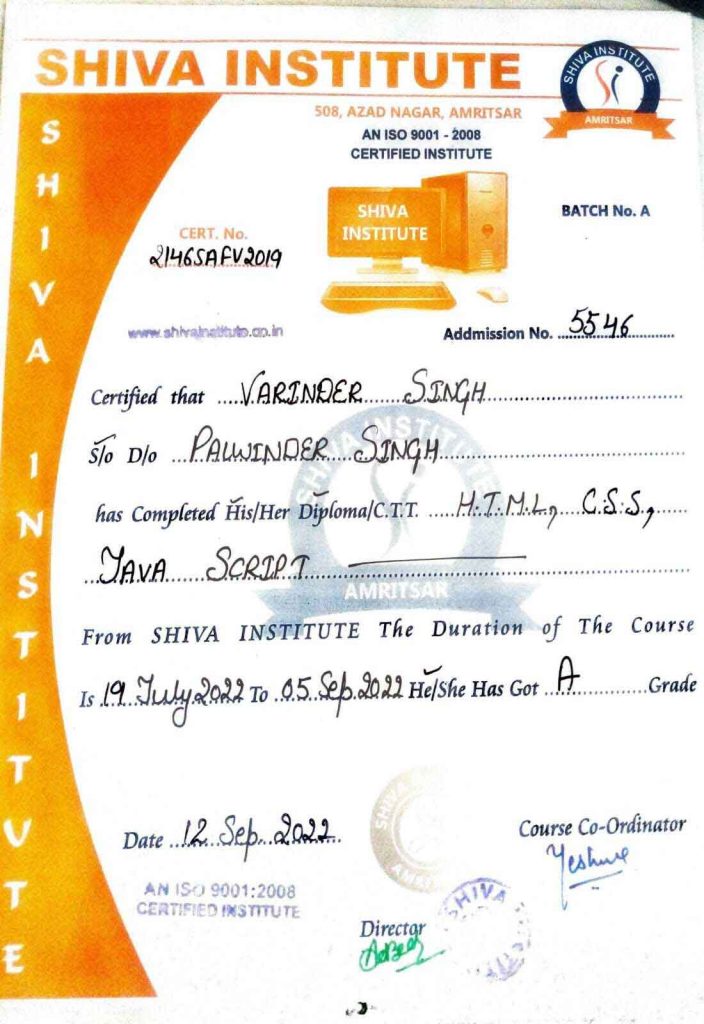 SHIVA INSTITUTE
SHIVA INSTITUTE
AMRITSAR
508, AZAD NAGAR, AMRITSAR
AN ISO 9001 - 2008
CERTIFIED INSTITUTE
SHIVA INSTITUTE
SHIVA
INSTITUTE
BATCH No. A
CERT. No.
2146SAFV2019
www.shivainstitute.co.in
Addmission No. 5546
Certified that VARINDER SINGH
S/o D/o PALWINDER SINGH
has Completed His/Her Diploma/C.T.T. H.T.M.L, C.S.S,
JAVA SCRIPT
SHIVA INSTITUTE
AMRITSAR
From SHIVA INSTITUTE The Duration of The Course
Is 19 July 2022 To 05 Sep 2022 He/She Has Got A Grade
Date 12 Sep. 2022
Course Co-Ordinator
AN ISO 9001:2008
CERTIFIED INSTITUTE
Director
SHIVA
SHIVA